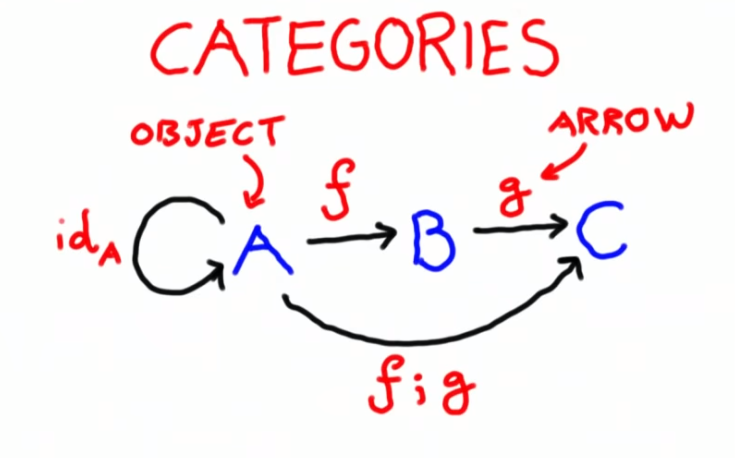 CATEGORIES
OBJECT
ARROW
f
g
id_A
A
B
C
f;g